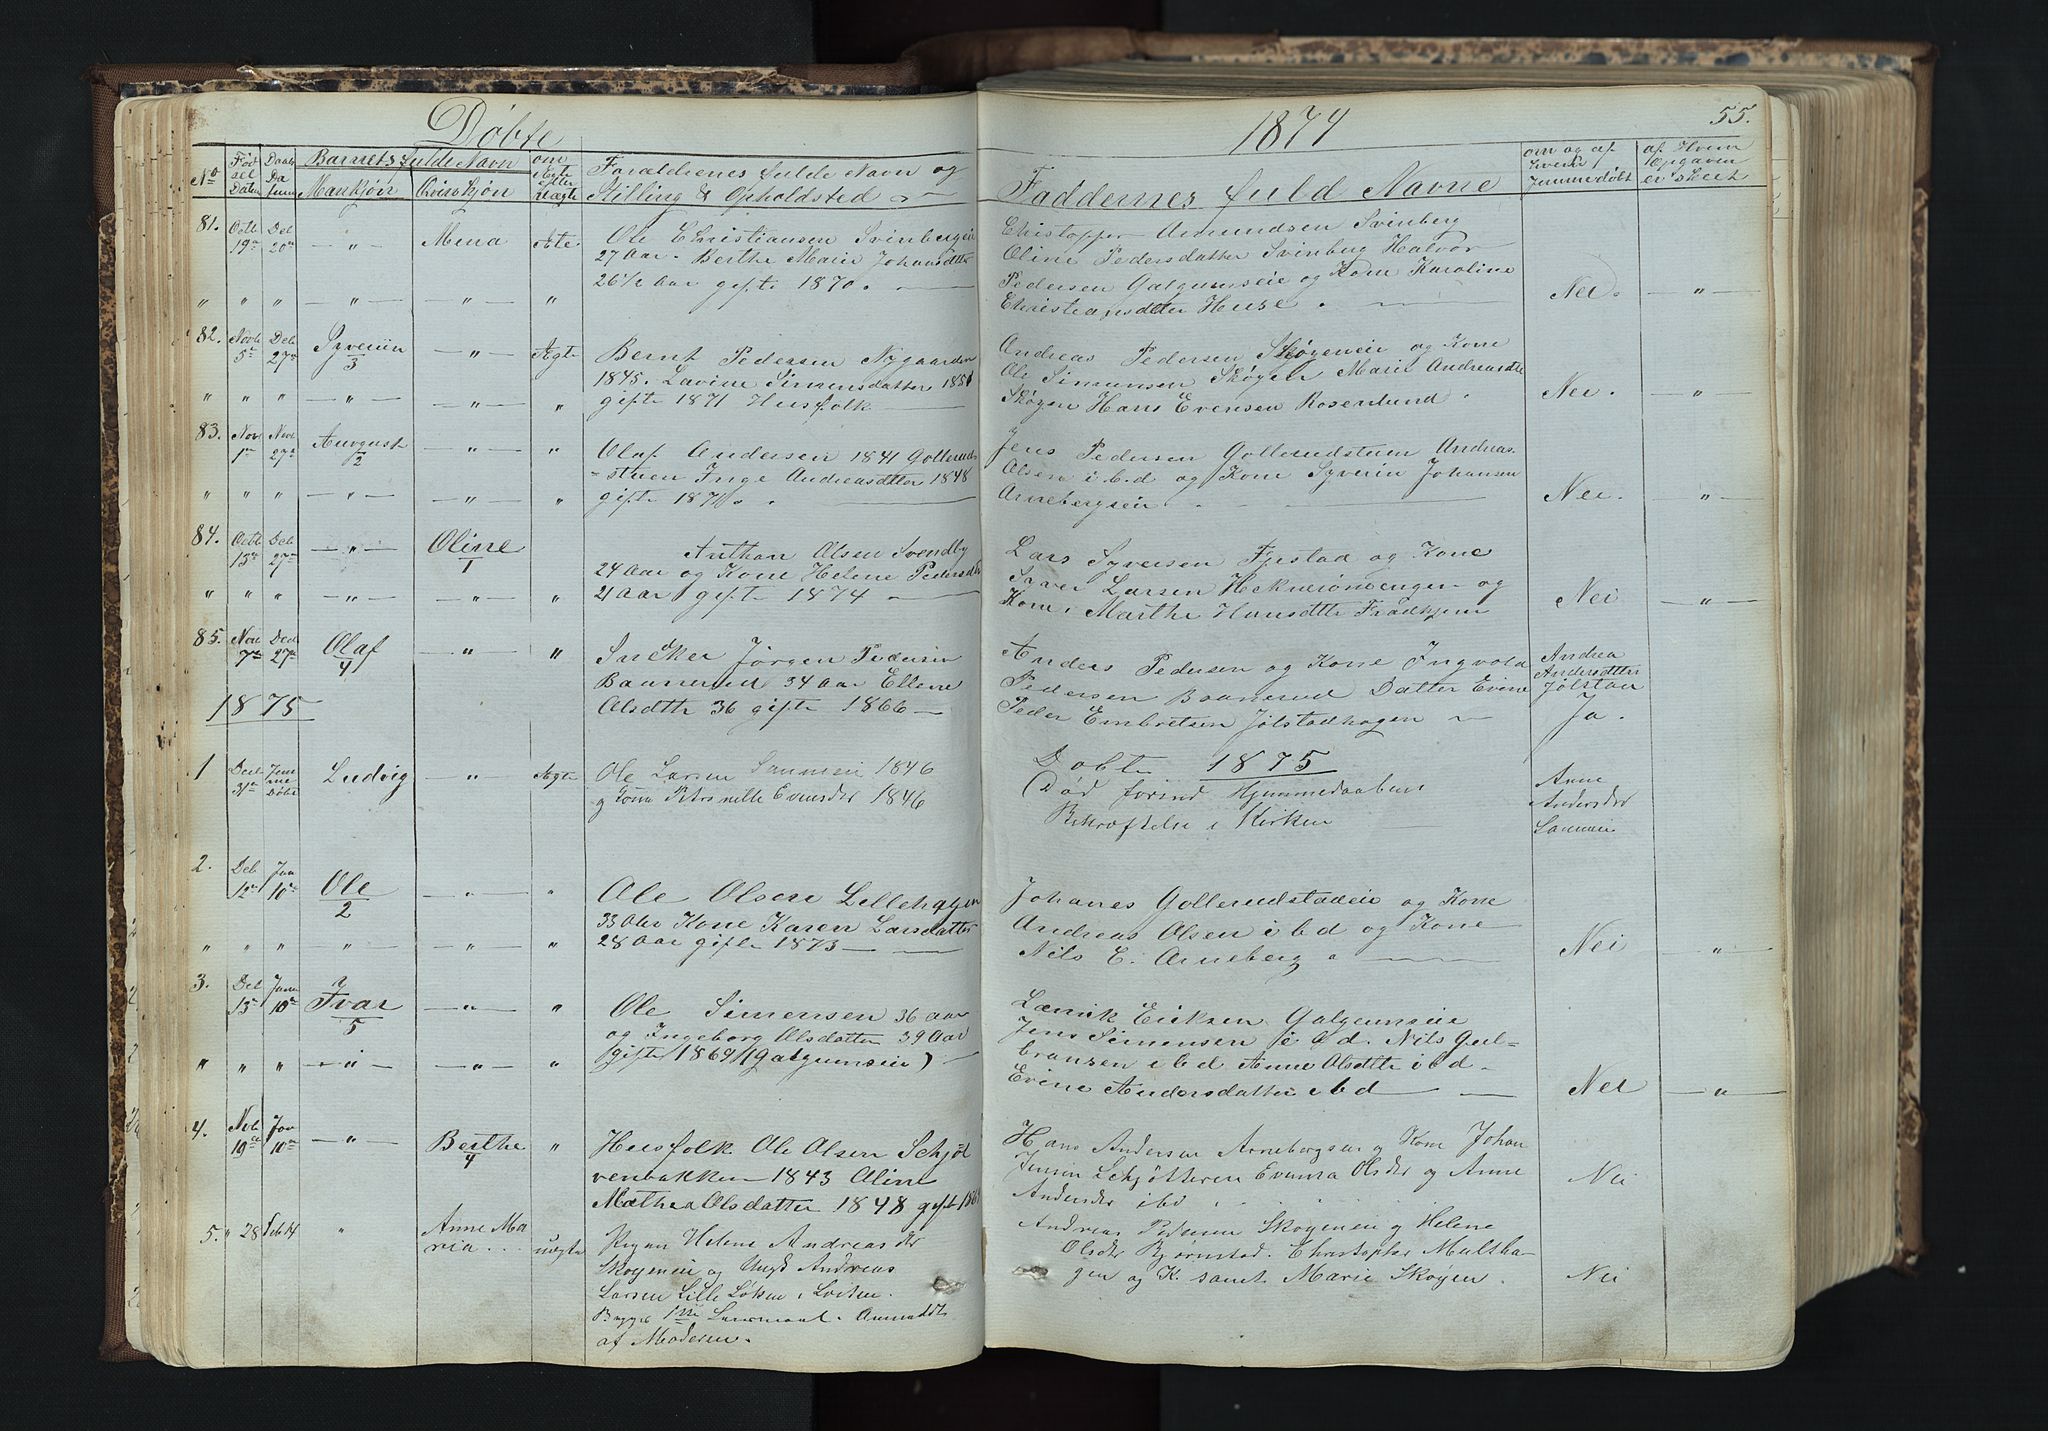 Døbte
1874
55.
No
Fødsel Datum
Daab Datum
Barnets fulde Navn
Mankjøn
Qvinkjøn
om Ægte eller Uægte
Forældrenes fulde Navn og
Stilling & Opholdsted
Faddernes fuld Navne
om og af Hvem Hjemmedøbt
af Hvem Opgaven er skeet
81. Octb 19de Deb 20de Mena Ægte Ole Christiansen Svinbergeie
27 Aar. Berthe Marie Johansdtter
26 1/2 Aar gift 1870.
Christopper Amundsen Svinberg
Oline Pedersdatter Svinberg Halvor
Pedersen Galgumseie og Kone Karoline
Christiansdtter Huse.
Nei.
82. Novb 5te Deb 27de Syveriin 3 Ægte Bernt Pedersen Nygaarden
1845. Lavine Simensdatter 1851
gifte 1871 Husfolk
Andreas Pedersen Skøgeneie og Kone
Ole Simensen Skøgen Marie Andreasdtr
Skøgen Hans Evensen Rosenlund
Nei.
83. Nov 1de Nov 27de August 2 Olaf Andersen 1841 Gollerud-
stuen Inge Andreasdtter 1848
gifte 1870.
Jens Pedersen Gollerudstuen Andreas
Olsen i.b.d og Kone Syverin Johansen
Arnebergseie
Nei.
84. Octb 15de Deb 27de Oline 1 Anthon Olsen Svendby
24 Aar og Kone Helene Pedersdtr
21 Aar gift 1874
Lars Syversen Fjestad og Kone
Syver Larsen og
Kone, Marthe Hansdtte
Nei
85. Nov 7de Deb 27de Olaf 4 Snedker Jørgen Pedersen
Baanerud 34 Aar Ellene
Olsdtte 36 gifte 1866
Anders Pedersen og Kone Ingvold
Pedersen Baanerud Datter Evine
Peder Embretsen Jølstadhagen
Andrea
Andersdtter
Jølstad
Ja.
1875
Døbte 1875
1 Deb 31te Hjemmedøbt Ludvig Ægte Ole Larsen 1846
og Kone Petronille Evensdr 1846
Død forind Hjemmedaabens
Bekræftelse i Kirken
Anne
Andersdr
2. Deb 12te Jan 10de Ole 2 Ole Olsen Lillehagen
33 Aar Kone Karen Larsdatter
28 Aar gifte 1873
Johanes Gollerudstadeie og Kone
Andreas Olsen i b d og Kone
Nils E. Arneberg
Nei
3. Deb 13de Janu 10de Ivar 5 Ole Simensen 36 aar
og Ingeborg Olsdatter 39 Aar
gifte 1869 (Galgumseie)
Lænik Eriksen Galgumseie
Jens Simensen i b d. Nils Gul-
bransen i b d Anne Olsdtte i b d
Evine Andersdatter i b d
Nei
4. Nvb 19de Jan 10de Berthe 4 Husfolk Ole Olsen Schjøt
venbakken 1843 Oline
Mathea Olsdatter 1848 gift
Hans Andersen Arnebergseie og Kone Johan
Jensen Schjøtteren Evensa Olsdr og Anne
Andersdr ibd
Nei
5. " 28 Feb 14 " Anne Ma
ria uægte Pigen Helene Andreasdr
Skøgeneie og Ungk Andreas
Larsen Lille Løken i Løiten.
Begges 1ste Leiermaal. Anmeldt
af Moderen.
Andreas Pedersen Skøgeneie og Helene
Olsdr Bjørnstad. Christopher Multha-
gen og K. samt Marie Skøgen.
Nei